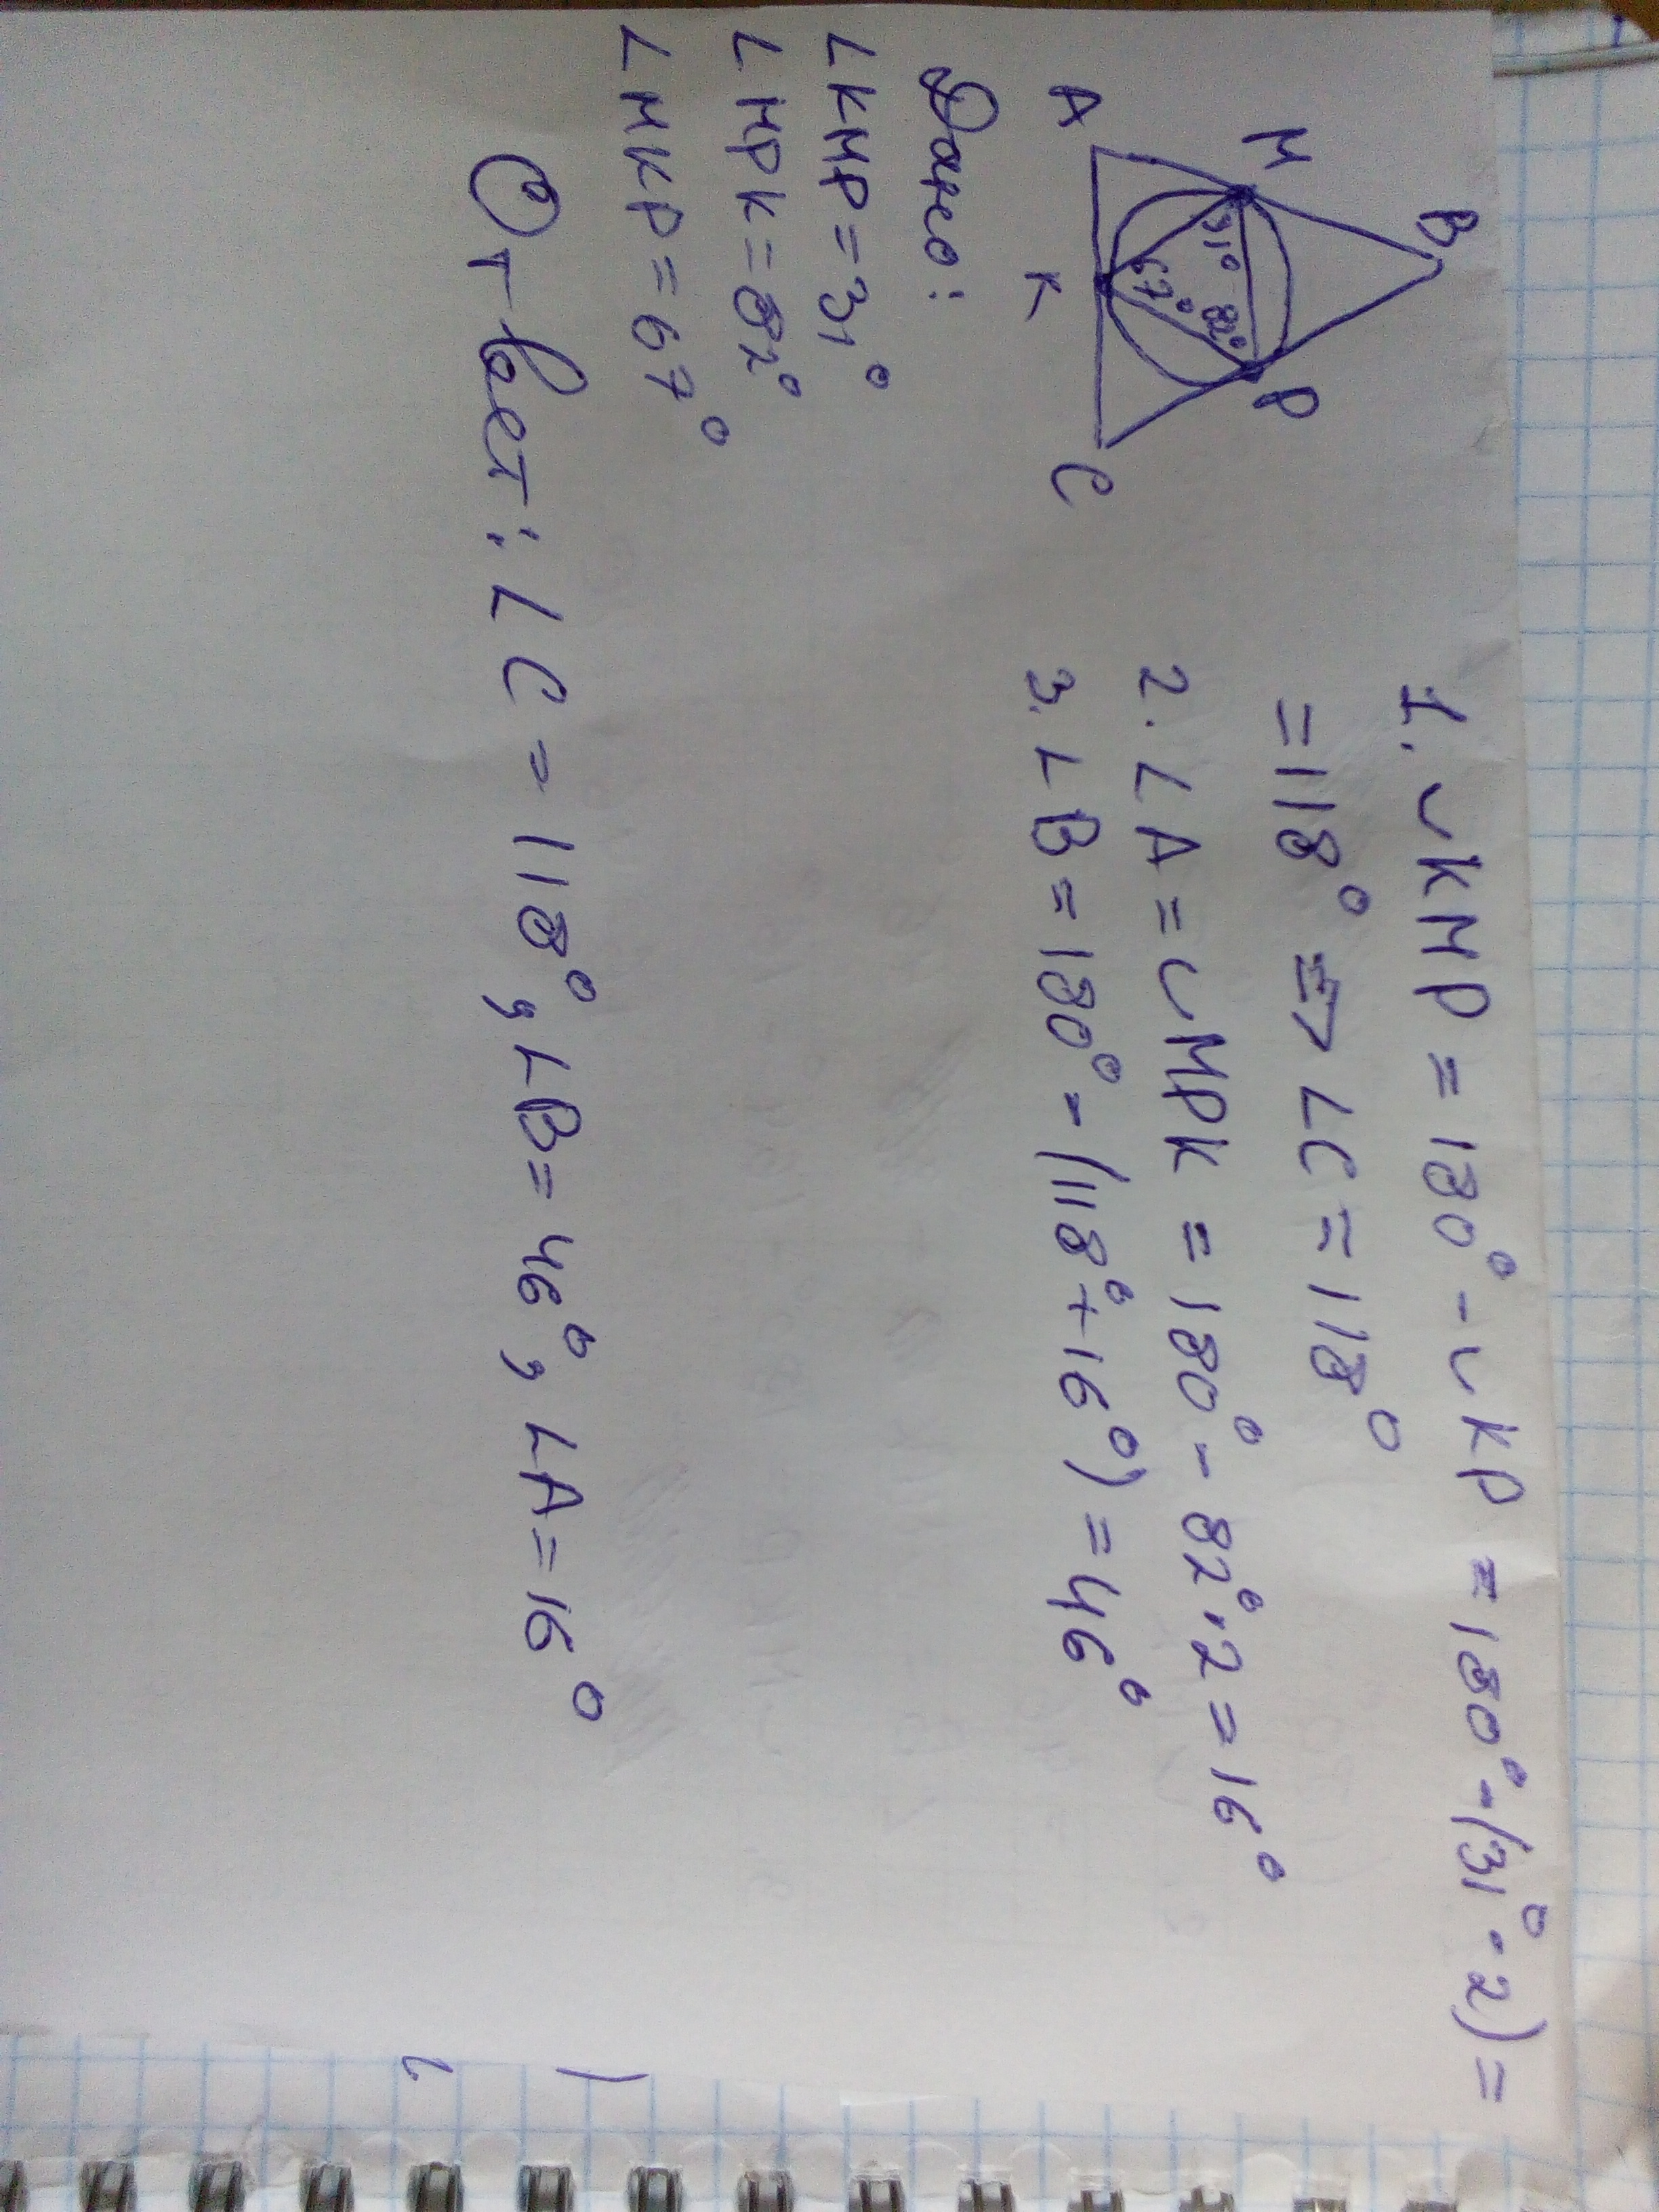 B
M
P
31° 82°
67°
A
K
C
Дано:
∠KMP = 31°
∠MPK = 82°
∠MKP = 67°
1. ◡KMP = 180° - ◡KP = 180° - (31° · 2) =
= 118° => ∠C = 118°
2. ∠A = ◡MPK = 180° - 82° · 2 = 16°
3. ∠B = 180° - (118° + 16°) = 46°
Ответ: ∠C = 118°, ∠B = 46°, ∠A = 16°